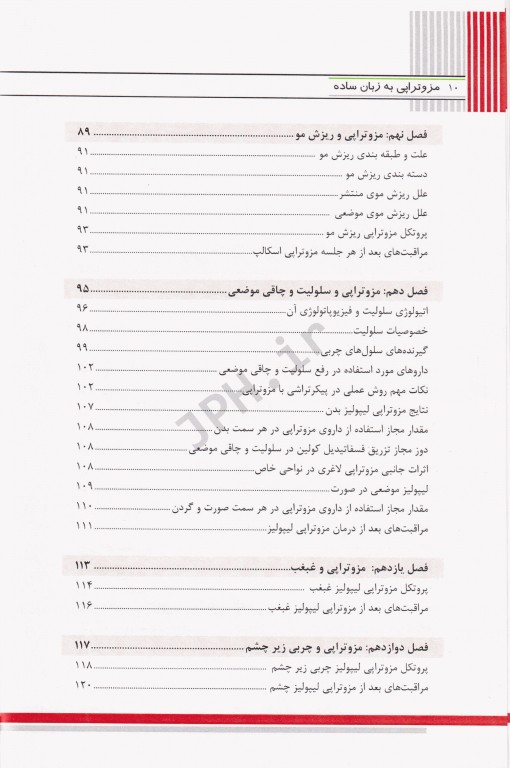 ۱۰ مزوتراپی به زبان ساده
فصل نهم: مزوتراپی و ریزش مو ۸۹
علت و طبقه بندی ریزش مو ۹۱
دسته بندی ریزش مو ۹۱
علل ریزش موی منتشر ۹۱
علل ریزش موی موضعی ۹۱
پروتکل مزوتراپی ریزش مو ۹۳
مراقبت‌های بعد از هر جلسه مزوتراپی اسکالپ ۹۳
فصل دهم: مزوتراپی و سلولیت و چاقی موضعی ۹۵
اتیولوژی سلولیت و فیزیوپاتولوژی آن ۹۶
خصوصیات سلولیت ۹۸
گیرنده‌های سلول‌های چربی ۹۹
داروهای مورد استفاده در رفع سلولیت و چاقی موضعی ۱۰۲
نکات مهم روش عملی در پیکرتراشی با مزوتراپی ۱۰۲
نتایج مزوتراپی لیپولیز بدن ۱۰۷
مقدار مجاز استفاده از داروی مزوتراپی در هر سمت بدن ۱۰۸
دوز مجاز تزریق فسفاتیدیل کولین در سلولیت و چاقی موضعی ۱۰۸
اثرات جانبی مزوتراپی لاغری در نواحی خاص ۱۰۸
لیپولیز موضعی در صورت ۱۰۹
مقدار مجاز استفاده از داروی مزوتراپی در هر سمت صورت و گردن ۱۱۰
مراقبت‌های بعد از درمان مزوتراپی لیپولیز ۱۱۱
فصل یازدهم: مزوتراپی و غبغب ۱۱۳
پروتکل مزوتراپی لیپولیز غبغب ۱۱۴
مراقبت‌های بعد از مزوتراپی لیپولیز غبغب ۱۱۶
فصل دوازدهم: مزوتراپی و چربی زیر چشم ۱۱۷
پروتکل مزوتراپی لیپولیز چربی زیر چشم ۱۱۸
مراقبت‌های بعد از مزوتراپی لیپولیز چشم ۱۲۰
JPH.ir